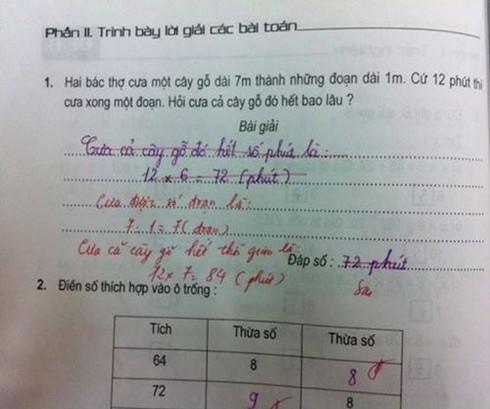 Phần II. Trình bày lời giải các bài toán
1. Hai bác thợ cưa một cây gỗ dài 7m thành những đoạn dài 1m. Cứ 12 phút thì
cưa xong một đoạn. Hỏi cưa cả cây gỗ đó hết bao lâu ?
Bài giải
Cưa cả cây gỗ đó hết số phút là:
12 x 6 = 72 (phút)
Cưa được số đoạn là:
7 : 1 = 7 (đoạn)
Cưa cả cây gỗ hết thời gian là
Đáp số : 72 phút
12 x 7 = 84 (phút)
Sai
2. Điền số thích hợp vào ô trống :
Tích Thừa số Thừa số
64 8 8
72 9 8